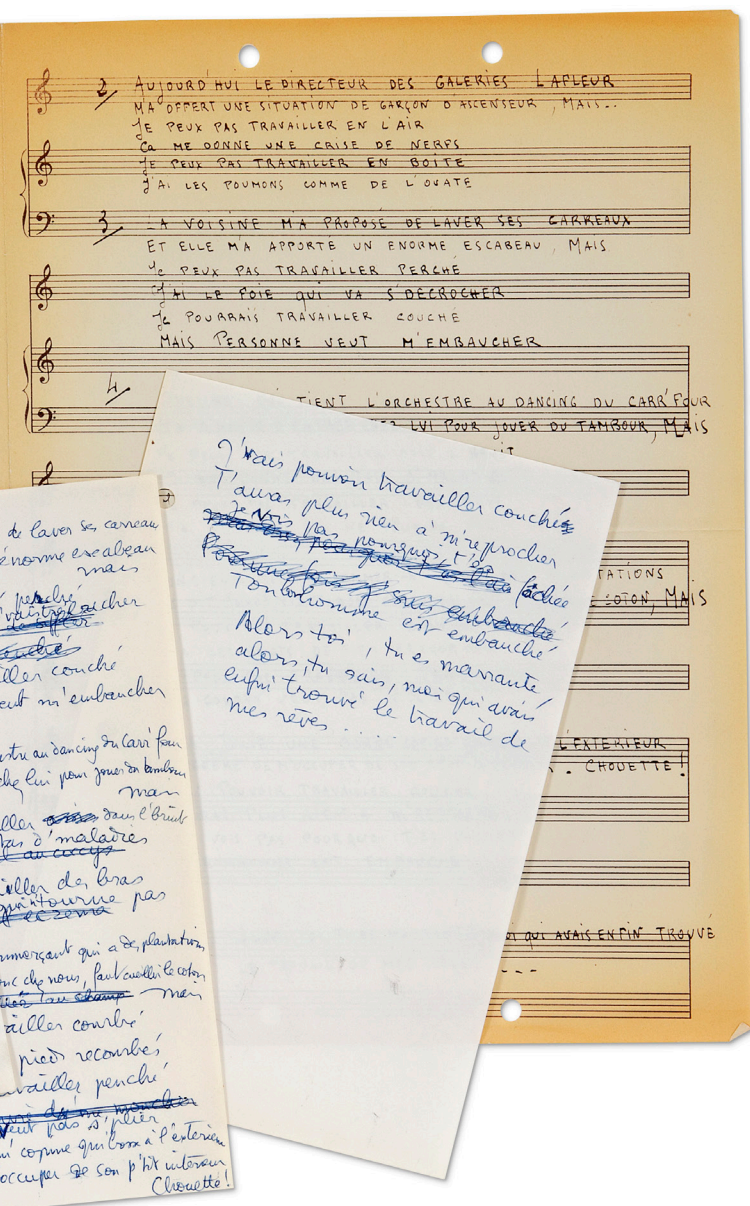 2/ AUJOURD'HUI LE DIRECTEUR DES GALERIES LAFLEUR
M'A OFFERT UNE SITUATION DE GARÇON D'ASCENSEUR, MAIS...
JE PEUX PAS TRAVAILLER EN L'AIR
ÇA ME DONNE UNE CRISE DE NERFS
JE PEUX PAS TRAVAILLER EN BOITE
J'AI LES POUMONS COMME DE L'OUATE
3/ LA VOISINE M'A PROPOSÉ DE LAVER SES CARREAUX
ET ELLE M'A APPORTÉ UN ENORME ESCABEAU, MAIS
JE PEUX PAS TRAVAILLER PERCHÉ
J'AI LE FOIE QUI VA S'DECROCHER
JE POURRAIS TRAVAILLER COUCHÉ
MAIS PERSONNE VEUT M'EMBAUCHER
4/
TIENT L'ORCHESTRE AU DANCING DU CARR'FOUR
LUI POUR JOUER DU TAMBOUR, MAIS
TATIONS
COTON, MAIS
L'EXTERIEUR
. CHOUETTE!
QUI AVAIS ENFIN TROUVÉ
---
J'vais pouvoir travailler couché
T'auras plus rien à m'reprocher
Je vois pas pourquoi t'es fâchée
Ton bonhomme est embauché
Alors toi, tu es marrante
alors, tu sais, moi qui avais
enfin trouvé le travail de
mes rêves .....
de laver ses carreaux
énorme escabeau
mais
perché
couché
ller couché
eut m'embaucher
estre au dancing du carr'four
che lui pour jouer du tambour
mais
ller dans l'bruit
pas d'maladies
au coccyx
ailler des bras
tourne pas
eczema
mmerçant qui a des plantations
onc chez nous, faut cueillir le coton
au champ mais
ailler courbé
pieds recourbés
vailler penché
veut pas s'plier
comme qui bosse à l'extérieur
occuper de son p'tit intérieur
Chouette!